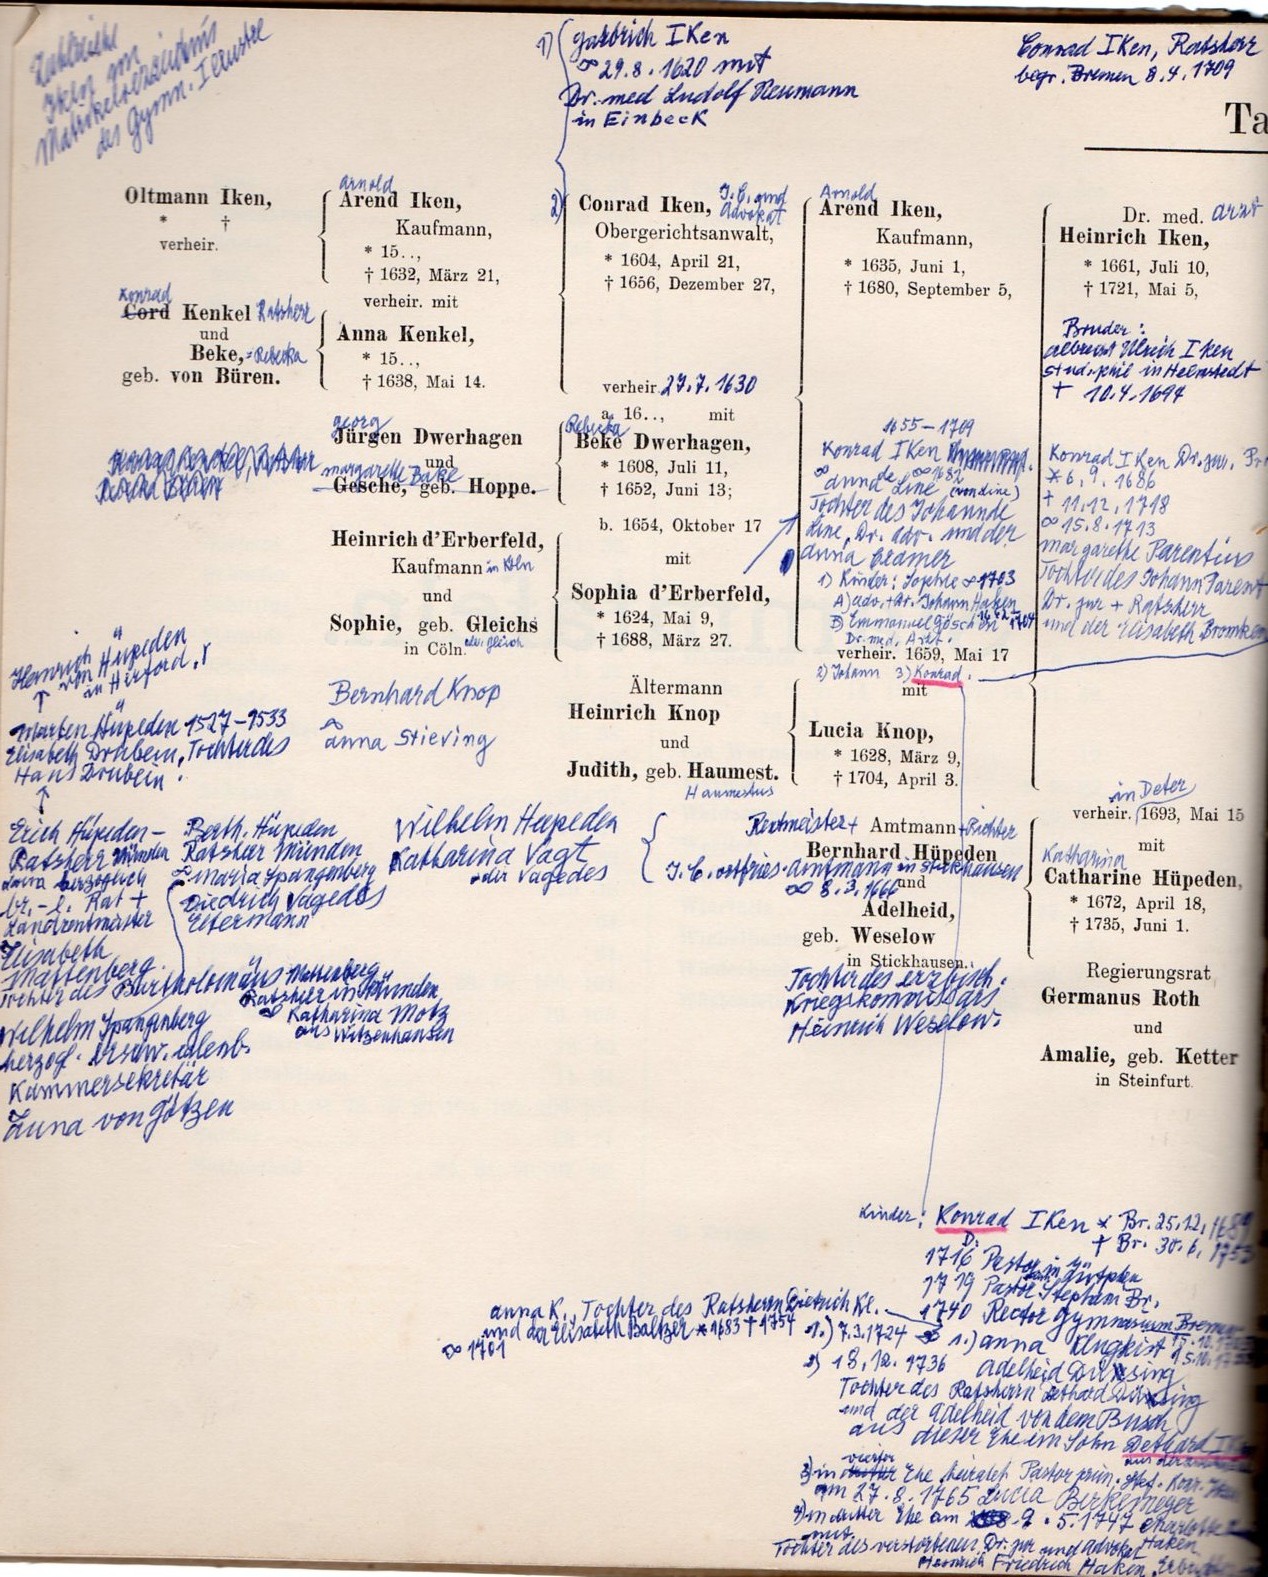 Zahlreiche
Iken im
Matrikelverzeichnis
des Gymn. Illustre
1)
Iken
∞ 29.8.1620 mit
Dr. med Ludolf Neumann
in Einbeck
Conrad Iken, Ratsherr
begr. Bremen 8.4.1709
Ta
Oltmann Iken,
* †
verheir.
Konrad
Cord Kenkel Ratsherr
und
Beke, = Rebecka
geb. von Büren.
Arnold
Arend Iken,
Kaufmann,
* 15..,
† 1632, März 21,
verheir. mit
Anna Kenkel,
* 15..,
† 1638, Mai 14.
Georg
Jürgen Dwerhagen
und
Margarethe Bake
Gesche, geb. Hoppe.
Heinrich d'Erberfeld,
Kaufmann in Köln
und
Sophie, geb. Gleichs
in Cöln.
Bernhard Knop
∞
Anna Stieving
2)
Conrad Iken, J.C. und
Advokat
Obergerichtsanwalt,
* 1604, April 21,
† 1656, Dezember 27,
verheir. 27.7.1630
a. 16.., mit
Rebecka
Beke Dwerhagen,
* 1608, Juli 11,
† 1652, Juni 13;
b. 1654, Oktober 17
mit
Sophia d'Erberfeld,
* 1624, Mai 9,
† 1688, März 27.
Ältermann
Heinrich Knop
und
Judith, geb. Haumest.
Haumestus
Arnold
Arend Iken,
Kaufmann,
* 1635, Juni 1,
† 1680, September 5,
1655–1709
Konrad Iken
∞ 1682
Anna de Line (von Line)
Tochter des Johann de
Line, Dr. adv. und der
Anna Cramer
1) Kinder: Sophie ∞ 1703
A) adv. + Dr. Johann Haken
B) Emmanuel Göschen 1704
Dr. med. Arzt.
verheir. 1659, Mai 17
2) Johann 3) Konrad.
mit
Lucia Knop,
* 1628, März 9,
† 1704, April 3.
Rentmeister + Amtmann + Richter
Bernhard Hüpeden
J.C. ostfries. Amtmann in Stickhausen
∞ 8.3.1666 und
Adelheid,
geb. Weselow
in Stickhausen.
Tochter des erzbisch.
Kriegskommissars
Heinrich Weselow.
Dr. med. Arzt
Heinrich Iken,
* 1661, Juli 10,
† 1721, Mai 5,
Bruder:
Albrecht Ulrich Iken
stud. phil in Helmstedt
† 10.4.1694
Konrad Iken Dr. jur.
* 6.9.1686
† 11.12.1718
∞ 15.8.1713
Margarethe Parentius
Tochter des Johann Parent
Dr. jur + Ratsherr
und der Elisabeth
in Deter
verheir. 1693, Mai 15
mit
Katharina
Catharine Hüpeden,
* 1672, April 18,
† 1735, Juni 1.
Regierungsrat
Germanus Roth
und
Amalie, geb. Ketter
in Steinfurt.
Heinrich
von Hüpeden
in Hirford.
↑
Marten Hüpeden 1527–1533
Elisabeth Drubein, Tochter des
Hans Drubein.
↑
Erich Hüpeden –
Ratsherr Münden
herzoglich
br.-l. Rat +
Landrentmeister
Elisabeth
Mattenberg.
Tochter des Bartholomäus Mattenberg
Ratsherr in Münden
∞ Katharina Motz
aus Witzenhausen
Berth. Hüpeden
Ratsherr Münden
∞ Maria Spangenberg
Diedrich Vagedes
Eltermann
Wilhelm Hüpeden
Katharina Vagt
oder Vagedes
Wilhelm Spangenberg
herzogl.
Kammersekretär
Anna von Götzen
Kinder: Konrad Iken * Br. 25.12.
† Br. 30.6. 1753
D.
1716 Pastor in Zütphen
1719 Pastor Stephani Br.
1740 Rector Gymnasium Bremen
Anna K., Tochter des Ratsherrn Dietrich Kl.
und der Elisabeth Baltzer * 1683 † 1754
∞ 1701
1.) 7.3.1724 1.) Anna Klugkist
2) 18.12.1736 Adelheid
Tochter des Ratsherrn Dethard
und der Adelheid von dem Busch
aus dieser Ehe ein Sohn Dethard
vierter
3) in Ehe heiratet Pastor prim.
am 27.8.1765 Lucia
4) in dritter Ehe am 9.5.1747 Charlotte
mit Haken
Tochter des verstorbenen Dr. jur und Advokat
Heinrich Friedrich Haken